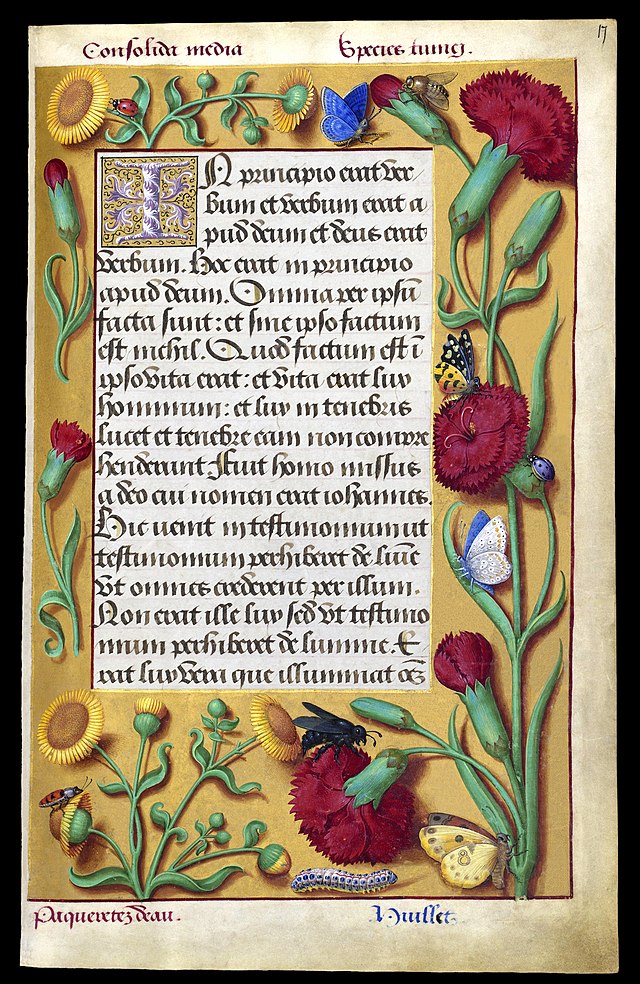 Consolida media
Species tunici.
17
IN principio erat ver-
bum et verbum erat a
pud deum et deus erat
verbum. Hoc erat in principio
apud deum. Omnia per ipsū
facta sunt: et sine ipso factum
est nichil. Quod factum est ī
ipso vita erat: et vita erat lux
hominum: et lux in tenebris
lucet et tenebre eam non compre
henderunt Fuit homo missus
a deo cui nomen erat iohannes.
Hic venit in testimonium ut
testimonium perhiberet de lumīe
Vt omnes crederent per illum.
Non erat ille lux sed vt testimo
nium perhiberet de lumine. E
rat lux vera que illuminat oēz
Paqueretez deau.
Huillet.